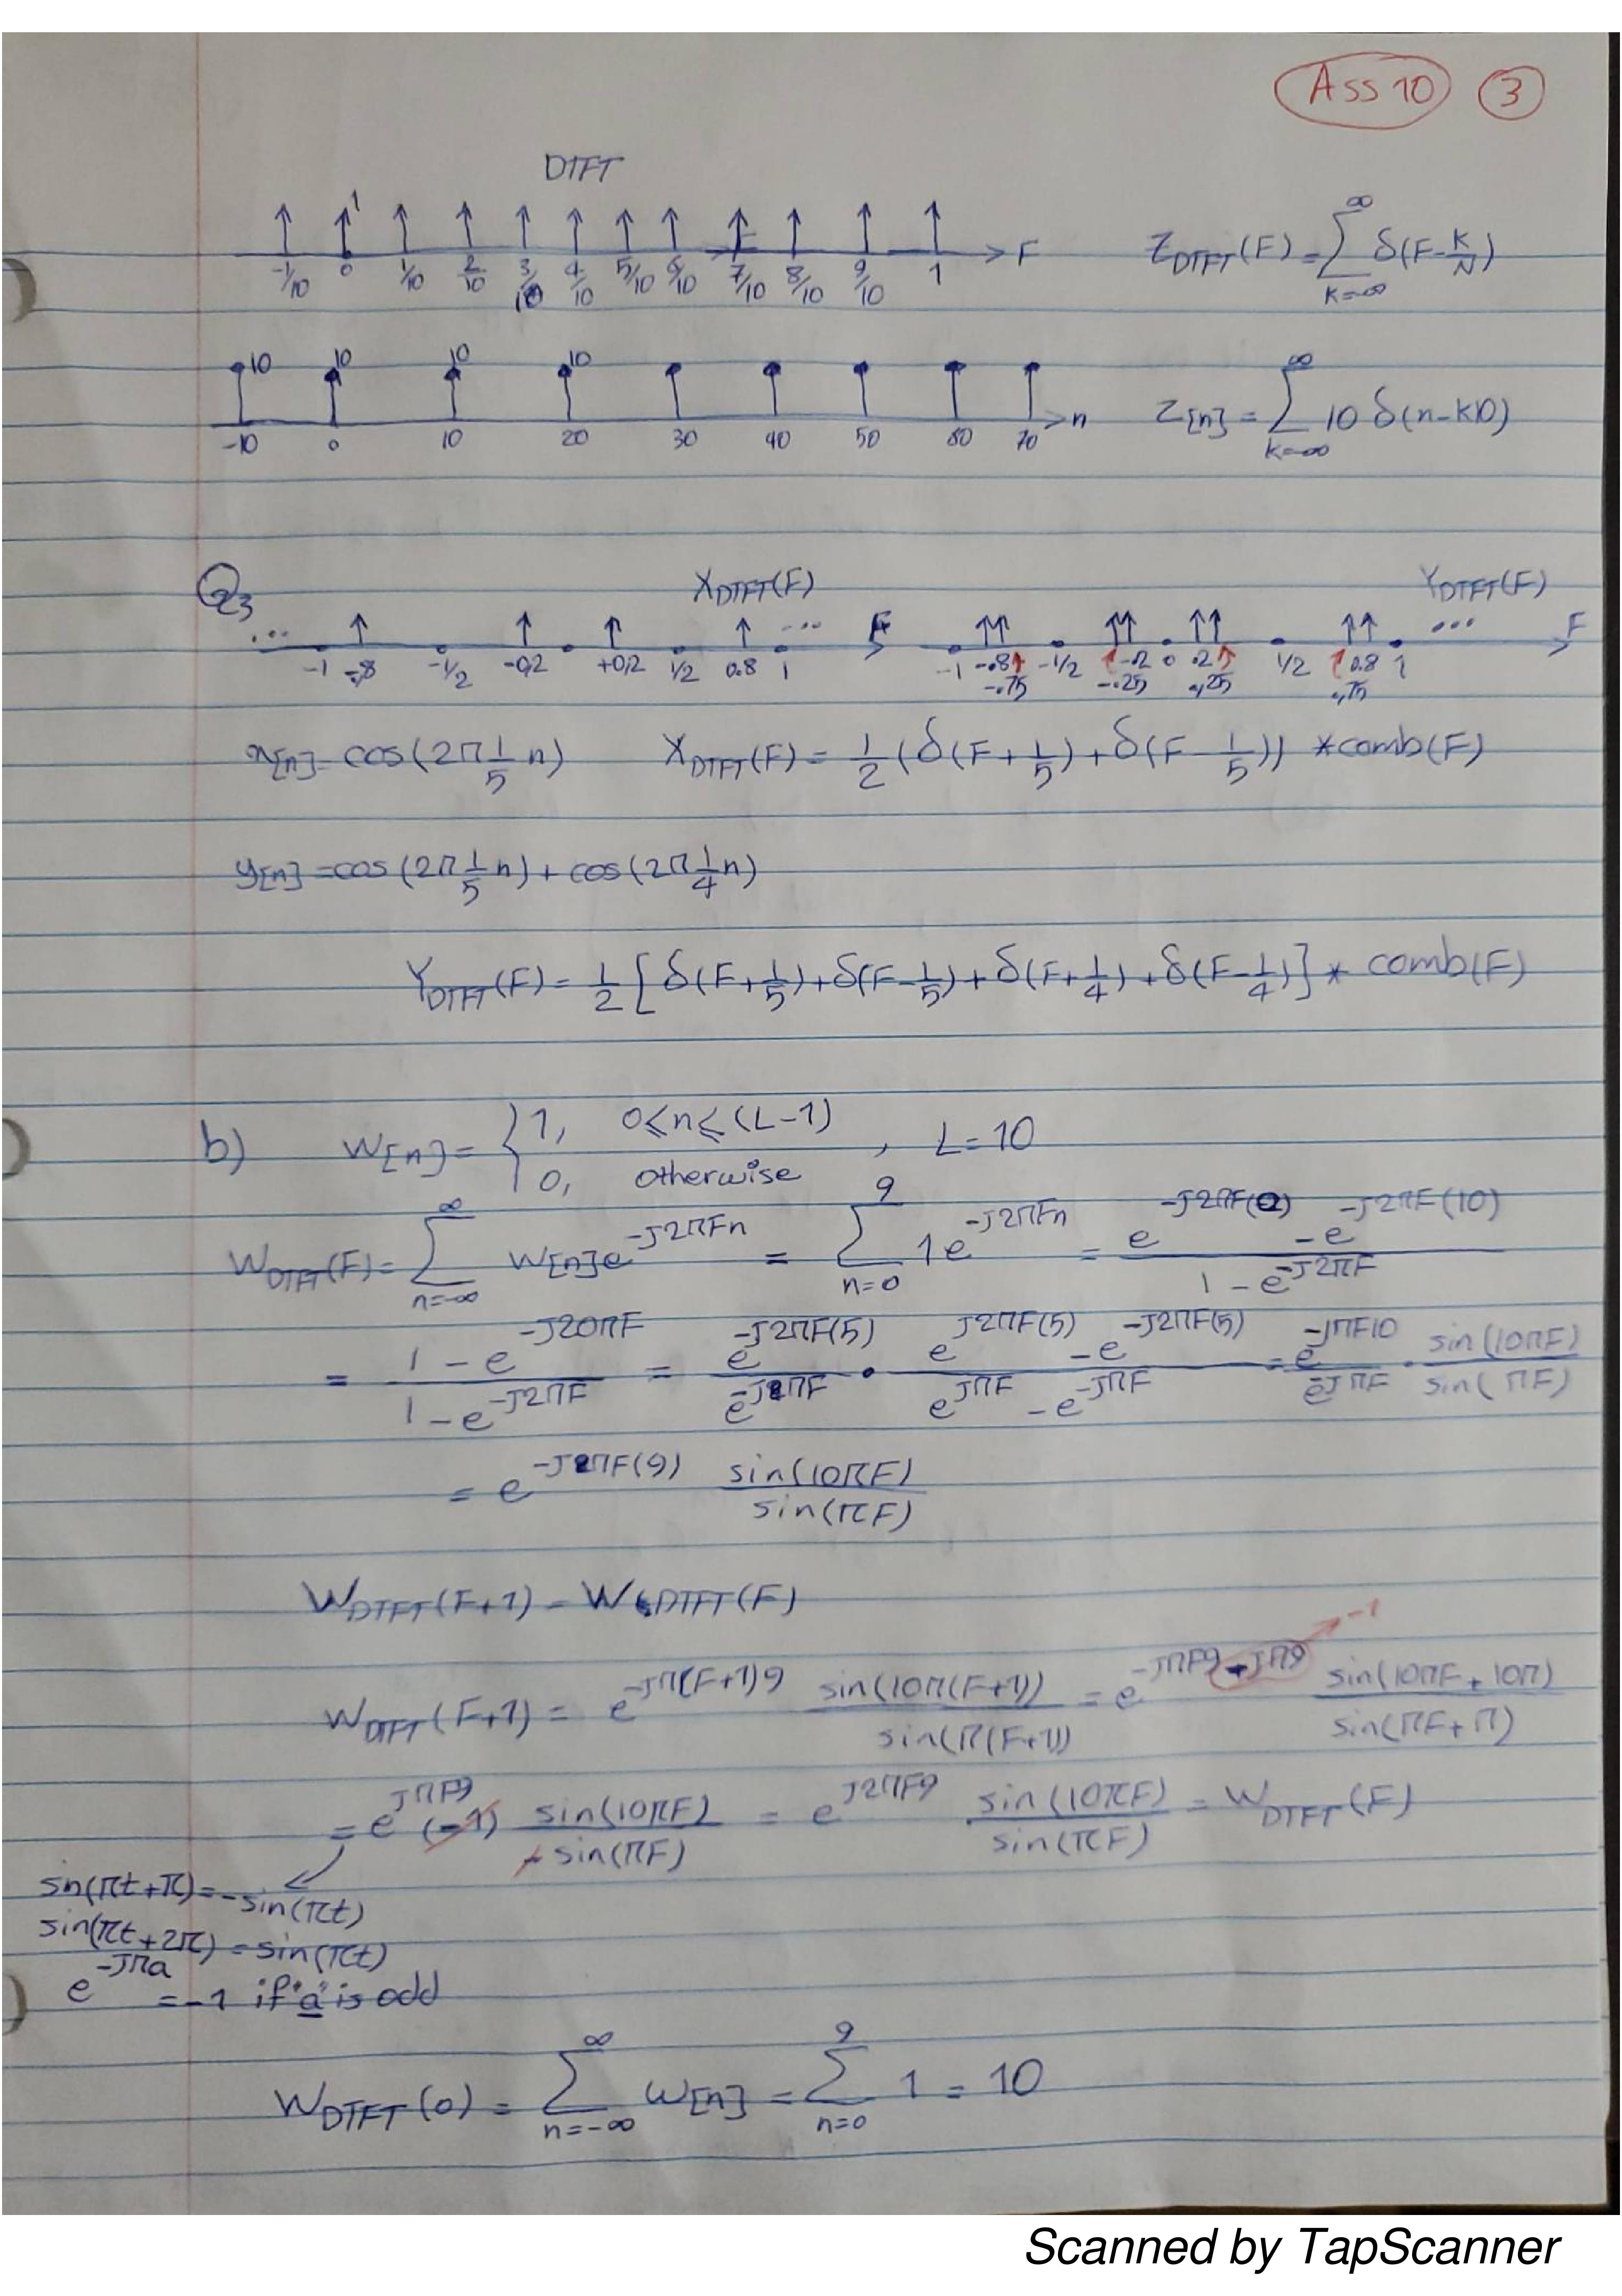 Ass 10 3
DTFT
1
-1/10 0 1/10 2/10 3/10 4/10 5/10 6/10 7/10 8/10 9/10 1 F
Z_DTFT(F) = ∑_{k=-∞}^{∞} δ(F - k/N)
10 10 10 10
-10 0 10 20 30 40 50 60 70 n
Z[n] = ∑_{k=-∞}^{∞} 10 δ(n-k10)
Q3 X_DTFT(F) Y_DTFT(F)
... -1 -.8 -1/2 -0,2 +0,2 1/2 0.8 1 ... F
-1 -.8 -.75 -1/2 -.2 -.25 0 .2 .25 1/2 0.8 .75 1 ... F
x[n] = cos(2π 1/5 n) X_DTFT(F) = 1/2 (δ(F + 1/5) + δ(F - 1/5)) * comb(F)
y[n] = cos(2π 1/5 n) + cos(2π 1/4 n)
Y_DTFT(F) = 1/2 [δ(F + 1/5) + δ(F - 1/5) + δ(F + 1/4) + δ(F - 1/4)] * comb(F)
b) W[n] = { 1, 0 ⩽ n ⩽ (L-1)
0, otherwise , L = 10
W_DTFT(F) = ∑_{n=-∞}^{∞} W[n] e^{-J2πFn} = ∑_{n=0}^{9} 1 e^{-J2πFn} = (e^{-J2πF(0)} - e^{-J2πF(10)}) / (1 - e^{-J2πF})
= (1 - e^{-J20πF}) / (1 - e^{-J2πF}) = e^{-J2πF(5)} / e^{-JπF} · (e^{J2πF(5)} - e^{-J2πF(5)}) / (e^{JπF} - e^{-JπF}) = e^{-JπF10} / e^{-JπF} · sin(10πF) / sin(πF)
= e^{-JπF(9)} sin(10πF) / sin(πF)
W_DTFT(F+1) = W_DTFT(F)
-1
W_DTFT(F+1) = e^{-Jπ(F+1)9} sin(10π(F+1)) / sin(π(F+1)) = e^{-JπF9 - Jπ9} sin(10πF + 10π) / sin(πF + π)
= e^{JπF9} (-1) sin(10πF) / -sin(πF) = e^{J2πF9} sin(10πF) / sin(πF) = W_DTFT(F)
sin(πt + π) = -sin(πt)
sin(πt + 2π) = sin(πt)
e^{-Jπa} = -1 if "a" is odd
W_DTFT(0) = ∑_{n=-∞}^{∞} W[n] = ∑_{n=0}^{9} 1 = 10
Scanned by TapScanner